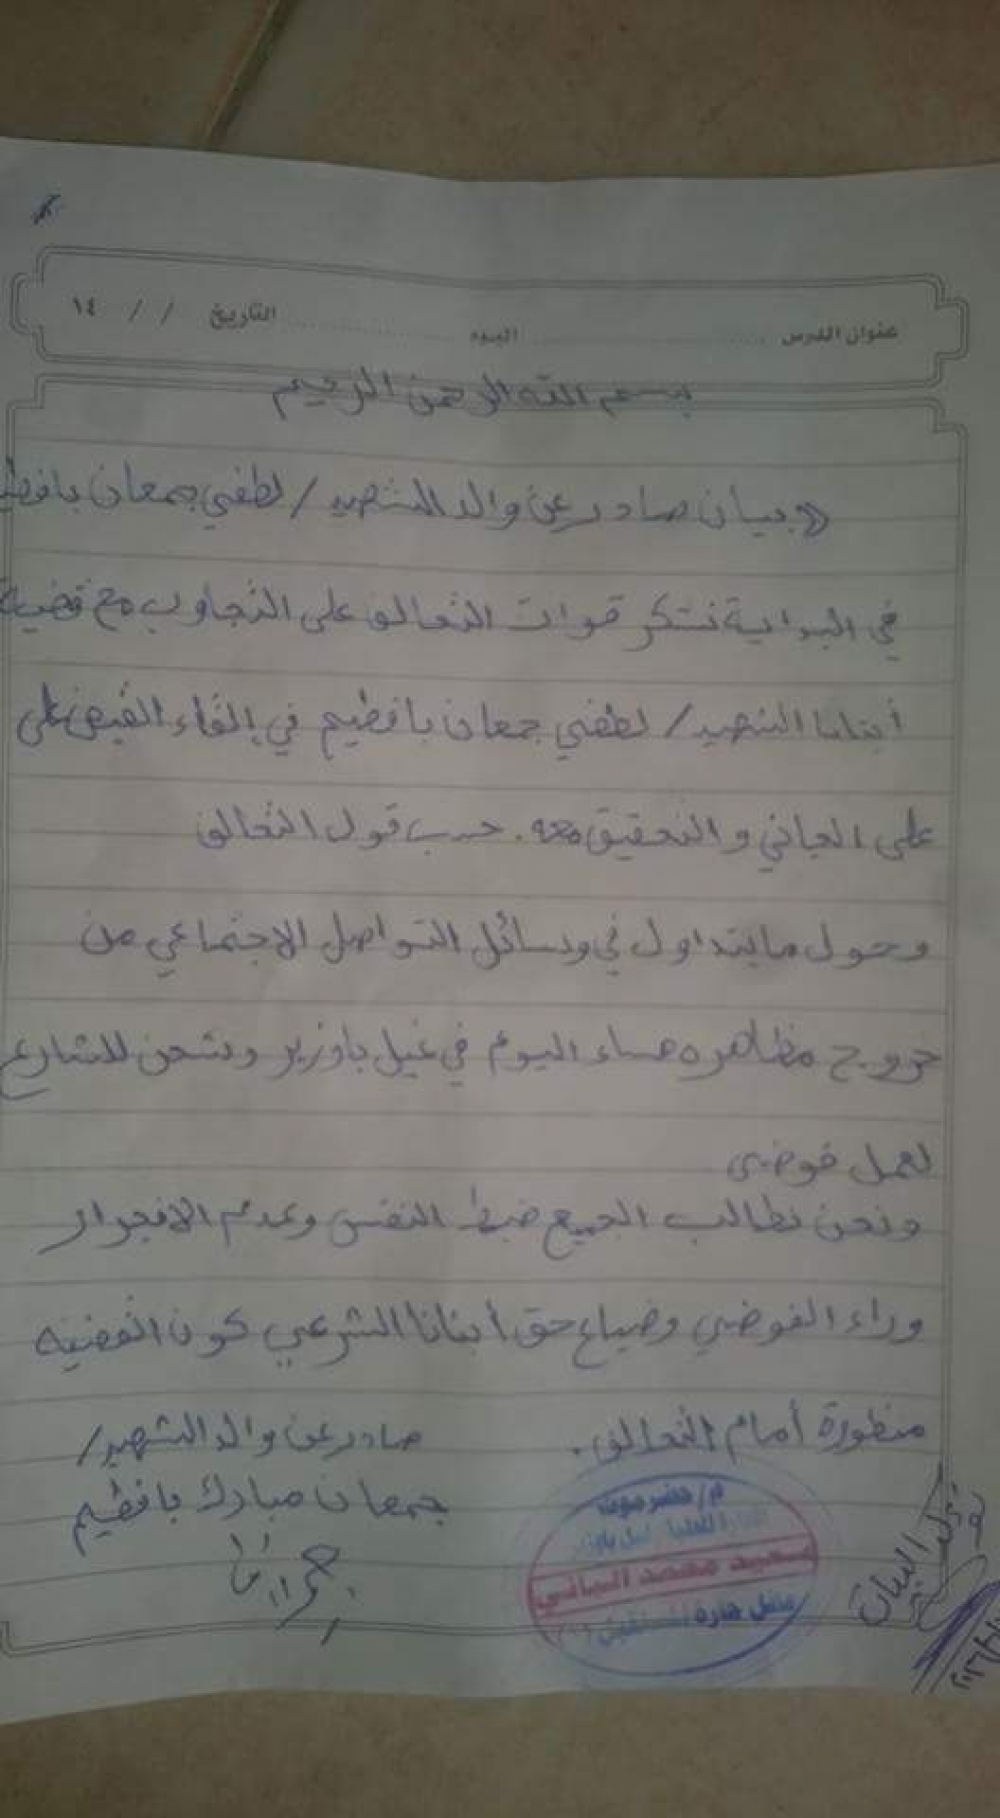 عنوان الدرس اليوم التاريخ / / ١٤
بسم الله الرحمن الرحيم
« بيان صادر عن والد الشهيد / لطفي جمعان بافطيم
في البداية نشكر قوات التحالف على التجاوب مع قضية
أبنانا الشهيد / لطفي جمعان بافطيم في إلقاء القبض على
على الجاني والتحقيق معه . حسب قول التحالف
وحول ما يتداول في وسائل التواصل الاجتماعي من
خروج مظاهره مساء اليوم في غيل باوزير وشحن للشارع
لعمل فوضى
ونحن نطالب الجميع ضبط النفس وعدم الانجرار
وراء الفوضى وضياع حق أبنانا الشرعي كون القضيه
منظورة أمام التحالف .
صادر عن والد الشهيد /
جمعان مبارك بافطيم
م/حضرموت
سعيد محمد
عاقل حارة
البيان